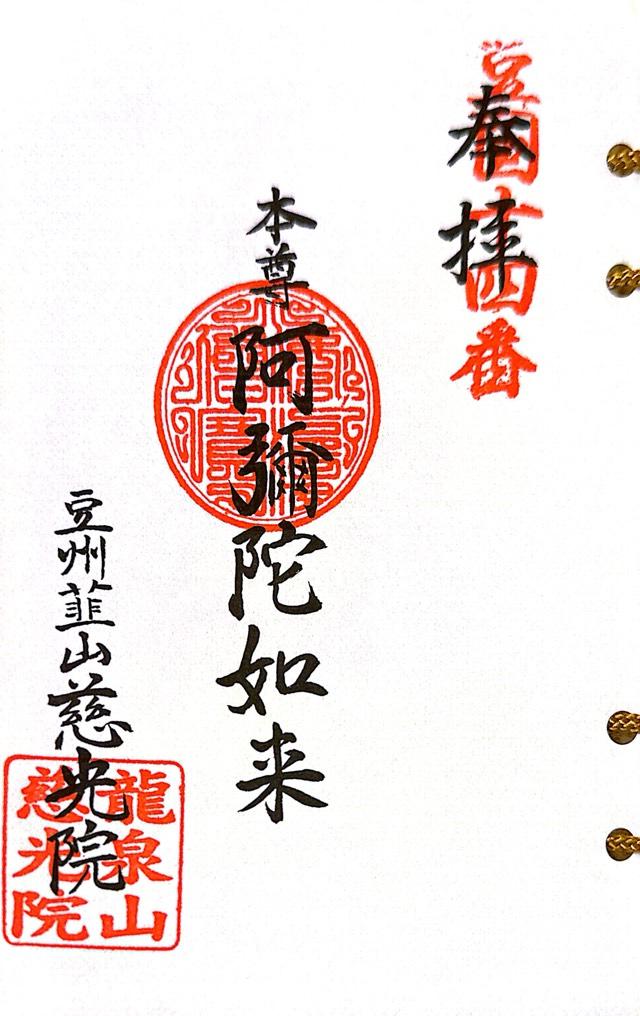 豆国十四番
奉拝
本尊 阿彌陀如来
豆州韮山慈光院
龍泉山
慈光院